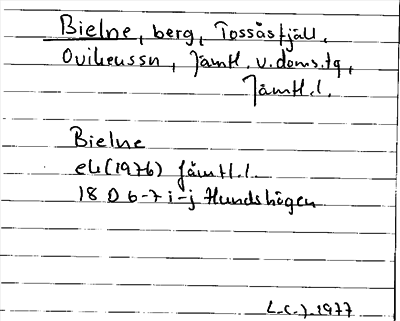 Bielne, berg, Tossåsfjäll,
Ovikenssn, Jämtl. v. doms.tg,
Jämtl.l.
Bielne
ek (1976) Jämtl.l.
18 D 6-7 i-j Hundshögen
L.C.J. 1977